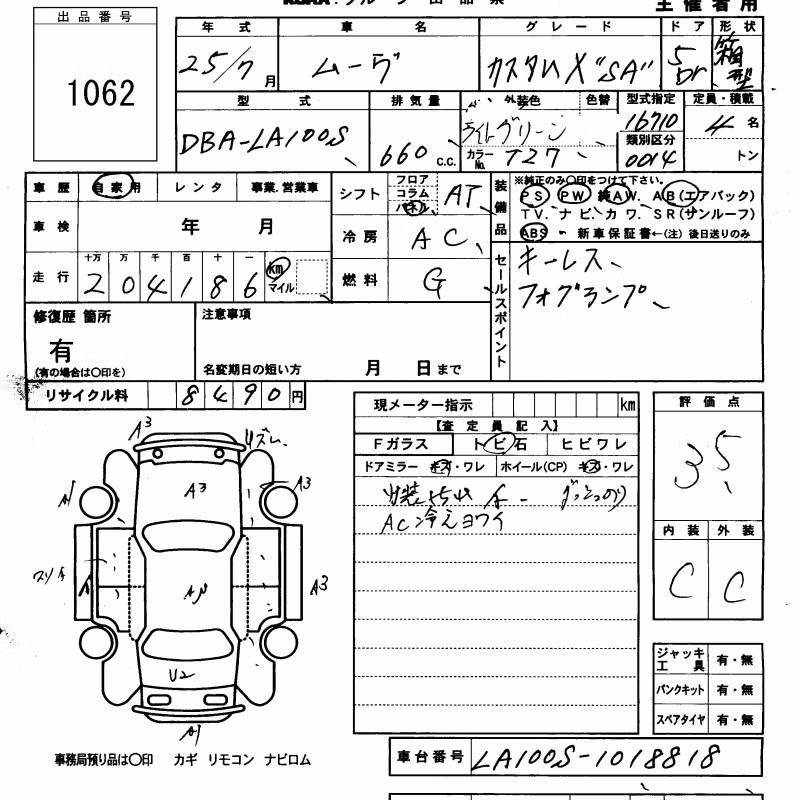 出品番号
1062
主催者用
年式 車名 グレード ドア 形状
25/7月 ムーヴ カスタムX"SA" 5Dr 箱型
型式 排気量 外装色 色替 型式指定 定員・積載
DBA-LA100S 660 c.c. ライトグリーン 16710 4名
カラーNo. T27 類別区分 0014 トン
車歴 自家用 レンタ 事業.営業車
車検 年 月
走行 十万 万 千 百 十 一
204186 km マイル
シフト フロア コラム パネル AT
冷房 AC
燃料 G
装備品
※純正のみ〇印をつけて下さい。
PS PW 純AW. AB(エアバック)
TV. ナビ. カワ. SR(サンルーフ)
ABS 新車保証書←(注) 後日送りのみ
セールスポイント
キーレス、
フォグランプ、
修復歴 箇所
有
(有の場合は〇印を)
注意事項
名変期日の短い方 月 日まで
リサイクル料 8490円
現メーター指示 km
【査定員記入】
Fガラス トビ石 ヒビワレ
ドアミラー キズ・ワレ ホイール(CP) キズ・ワレ
AC冷えヨワイ
評価点
3.5
内装 外装
C C
A3
A3
A3
A1
A3
U2
A1
ジャッキ工具 有・無
パンクキット 有・無
スペアタイヤ 有・無
事務局預り品は〇印 カギ リモコン ナビロム
車台番号 LA100S-1018818